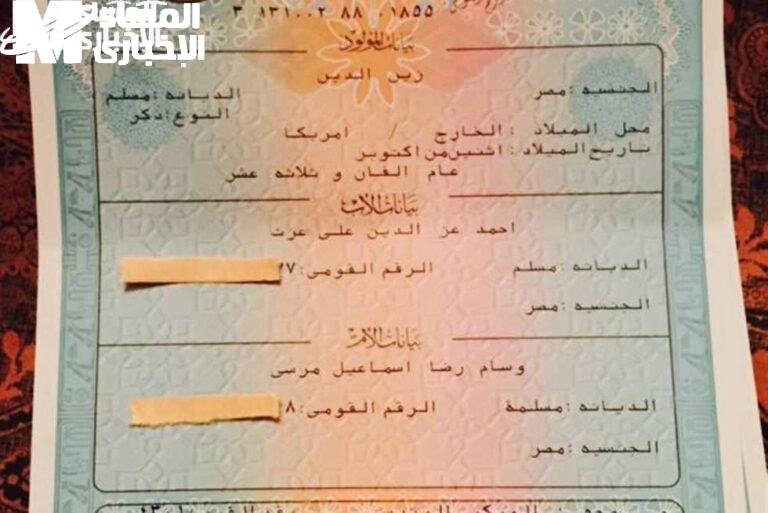 ٣ ١٣١٠٠٢ ٨٨ ٠١٨٥٥
الإخباري
بيانات المولود
زين الدين
الجنسيه :مصر
الديانه :مسلم
النوع :ذكر
محل الميلاد : الخارج / امريكا
تاريخ الميلاد : اثنين من اكتوبر
عام الفان و ثلاثه عشر
بيانات الأب
احمد عز الدين على عزت
الديانه :مسلم
الرقم القومى :٢٧
الجنسيه :مصر
بيانات الأم
وسام رضا اسماعيل مرسى
الديانه :مسلمة
الرقم القومى :٢٨
الجنسيه :مصر